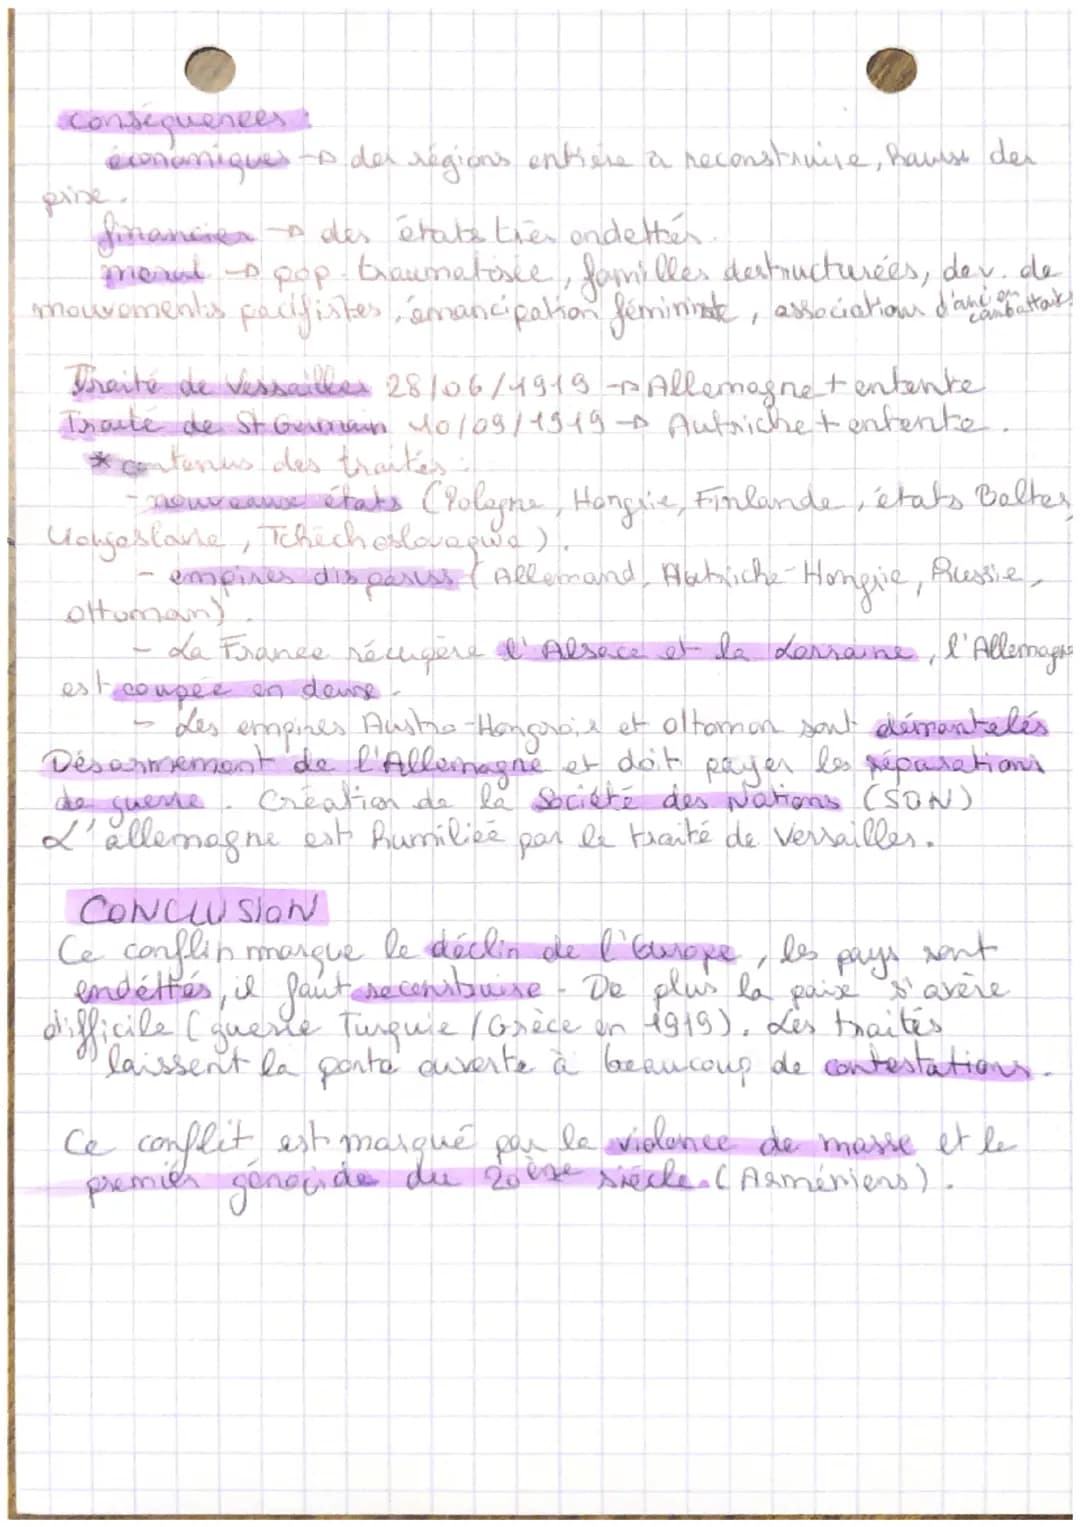 conséquences :
économiques → des régions entière à reconstruire, hausse des
prix.
financier → des états très endettés.
moral → pop. traumatisée, familles destructurées, dev. de
mouvements pacifistes, émancipation féministe, associations d'anciens combattants
Traité de Versailles 28/06/1919 → Allemagne + entente
Traité de St Germain 10/09/1919 → Autriche + entente.
* contenus des traités :
- nouveaux états (Pologne, Hongrie, Finlande, états Baltes,
Yougoslavie, Tchéchoslovaquie).
- empires disparuss (Allemand, Autriche-Hongrie, Russie,
ottoman).
- La France récupère l'Alsace et la Lorraine, l'Allemagne
est coupée en deux.
- Les empires Austro-Hongrois et ottoman sont démantelés
Désarmement de l'Allemagne et doit payer les réparations
de guerre. Création de la Société des Nations (SDN)
L'allemagne est humiliée par le traité de Versailles.
CONCLUSION
Ce conflit marque le déclin de l'Europe, les pays sont
endéttés, il faut reconstruire. De plus la paix s'avère
difficile (guerre Turquie/Grèce en 1919). Les traités
laissent la porte ouverte à beaucoup de contestations.
Ce conflit est marqué par la violence de masse et le
premier génocide du 20ème siècle (Arméniens).